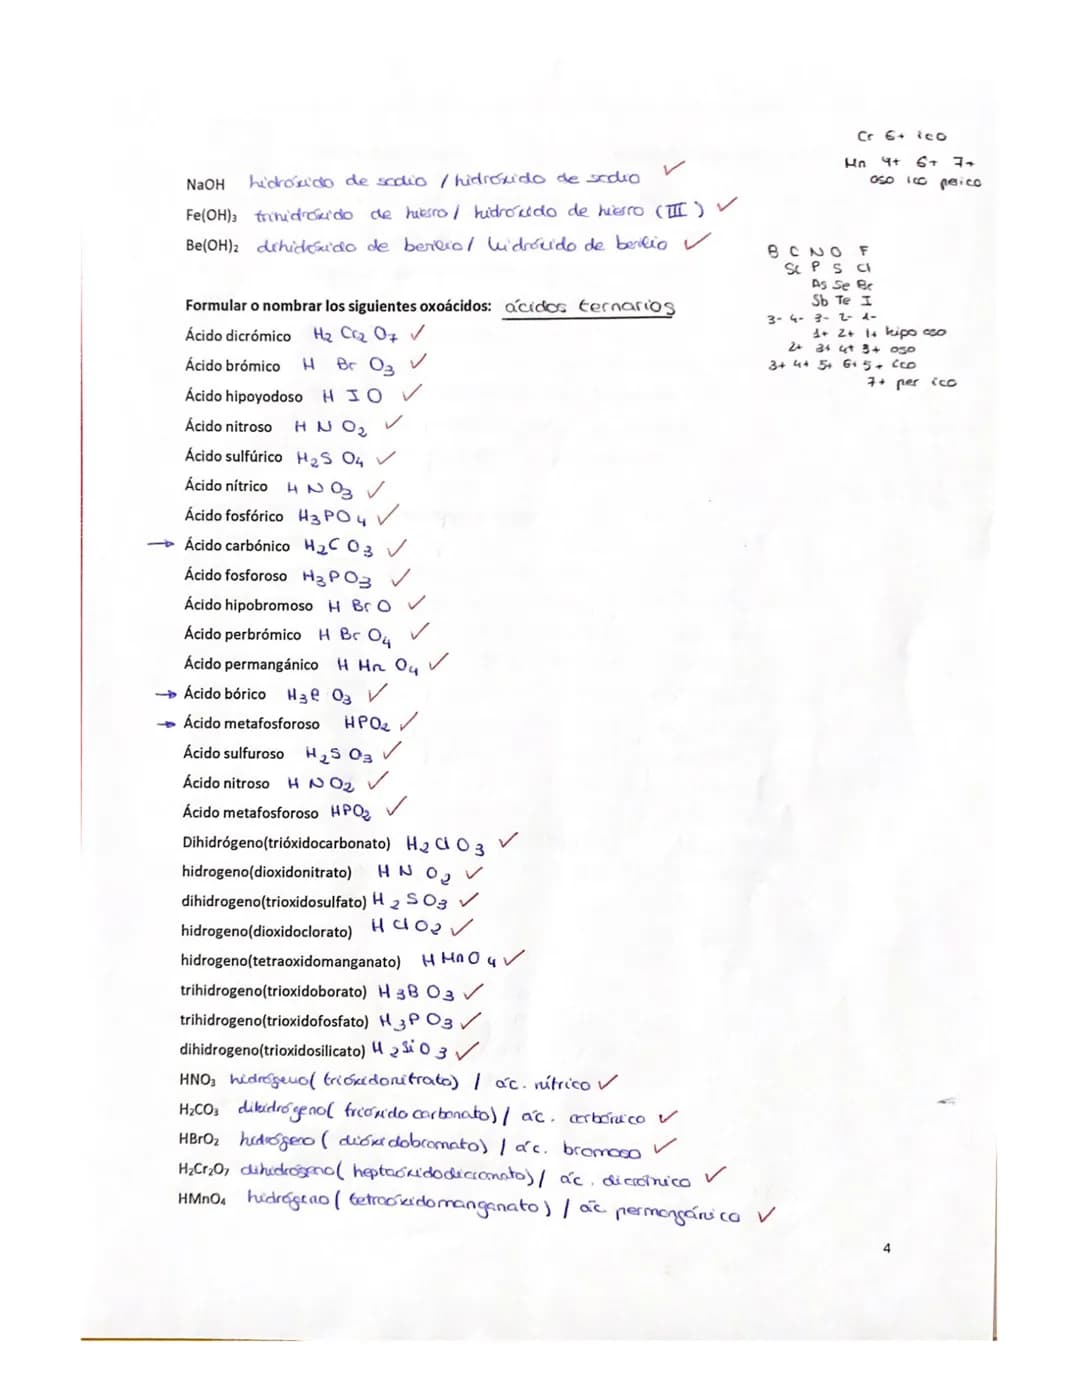 Cr 6+ ico
Mn 4+ 6+ 7+
oso ico perico
NaOH hidróxido de sodio / hidróxido de sodio ✓
Fe(OH)₃ trihidróxido de hierro / hidróxido de hierro (III) ✓
Be(OH)₂ dihidróxido de berilio / hidróxido de berilio ✓
B C N O F
Si P S Cl
As Se Br
Sb Te I
3- 4- 3- 2- 1-
1+ 2+ 1+ hipo oso
2+ 3+ 4+ 3+ oso
3+ 4+ 5+ 6+ 5+ ico
7+ per ico
Formular o nombrar los siguientes oxoácidos: ácidos ternarios
Ácido dicrómico H₂ Cr₂ O₇ ✓
Ácido brómico H Br O₃ ✓
Ácido hipoyodoso H I O ✓
Ácido nitroso H N O₂ ✓
Ácido sulfúrico H₂S O₄ ✓
Ácido nítrico H N O₃ ✓
Ácido fosfórico H₃PO₄ ✓
→ Ácido carbónico H₂C O₃ ✓
Ácido fosforoso H₃PO₃ ✓
Ácido hipobromoso H Br O ✓
Ácido perbrómico H Br O₄ ✓
Ácido permangánico H Mn O₄ ✓
→ Ácido bórico H₃B O₃ ✓
→ Ácido metafosforoso HPO₂ ✓
Ácido sulfuroso H₂S O₃ ✓
Ácido nitroso H N O₂ ✓
Ácido metafosforoso HPO₂ ✓
Dihidrógeno(trióxidocarbonato) H₂ Cl O₃ ✓
hidrogeno(dioxidonitrato) H N O₂ ✓
dihidrogeno(trioxidosulfato) H₂SO₃ ✓
hidrogeno(dioxidoclorato) H Cl O₂ ✓
hidrogeno(tetraoxidomanganato) H Mn O₄ ✓
trihidrogeno(trioxidoborato) H₃B O₃ ✓
trihidrogeno(trioxidofosfato) H₃P O₃ ✓
dihidrogeno(trioxidosilicato) H₂Si O₃ ✓
HNO₃ hidrógeno( trióxidonitrato) / ác. nítrico ✓
H₂CO₃ dihidrógeno( trióxido carbonato) / ác. carbónico ✓
HBrO₂ hidrógeno ( dióxidobromato) / ác. bromoso ✓
H₂Cr₂O₇ dihidrógeno( heptaóxidodicromato) / ác. dicrómico ✓
HMnO₄ hidrógeno ( tetraóxidomanganato ) / ác permangánico ✓
4